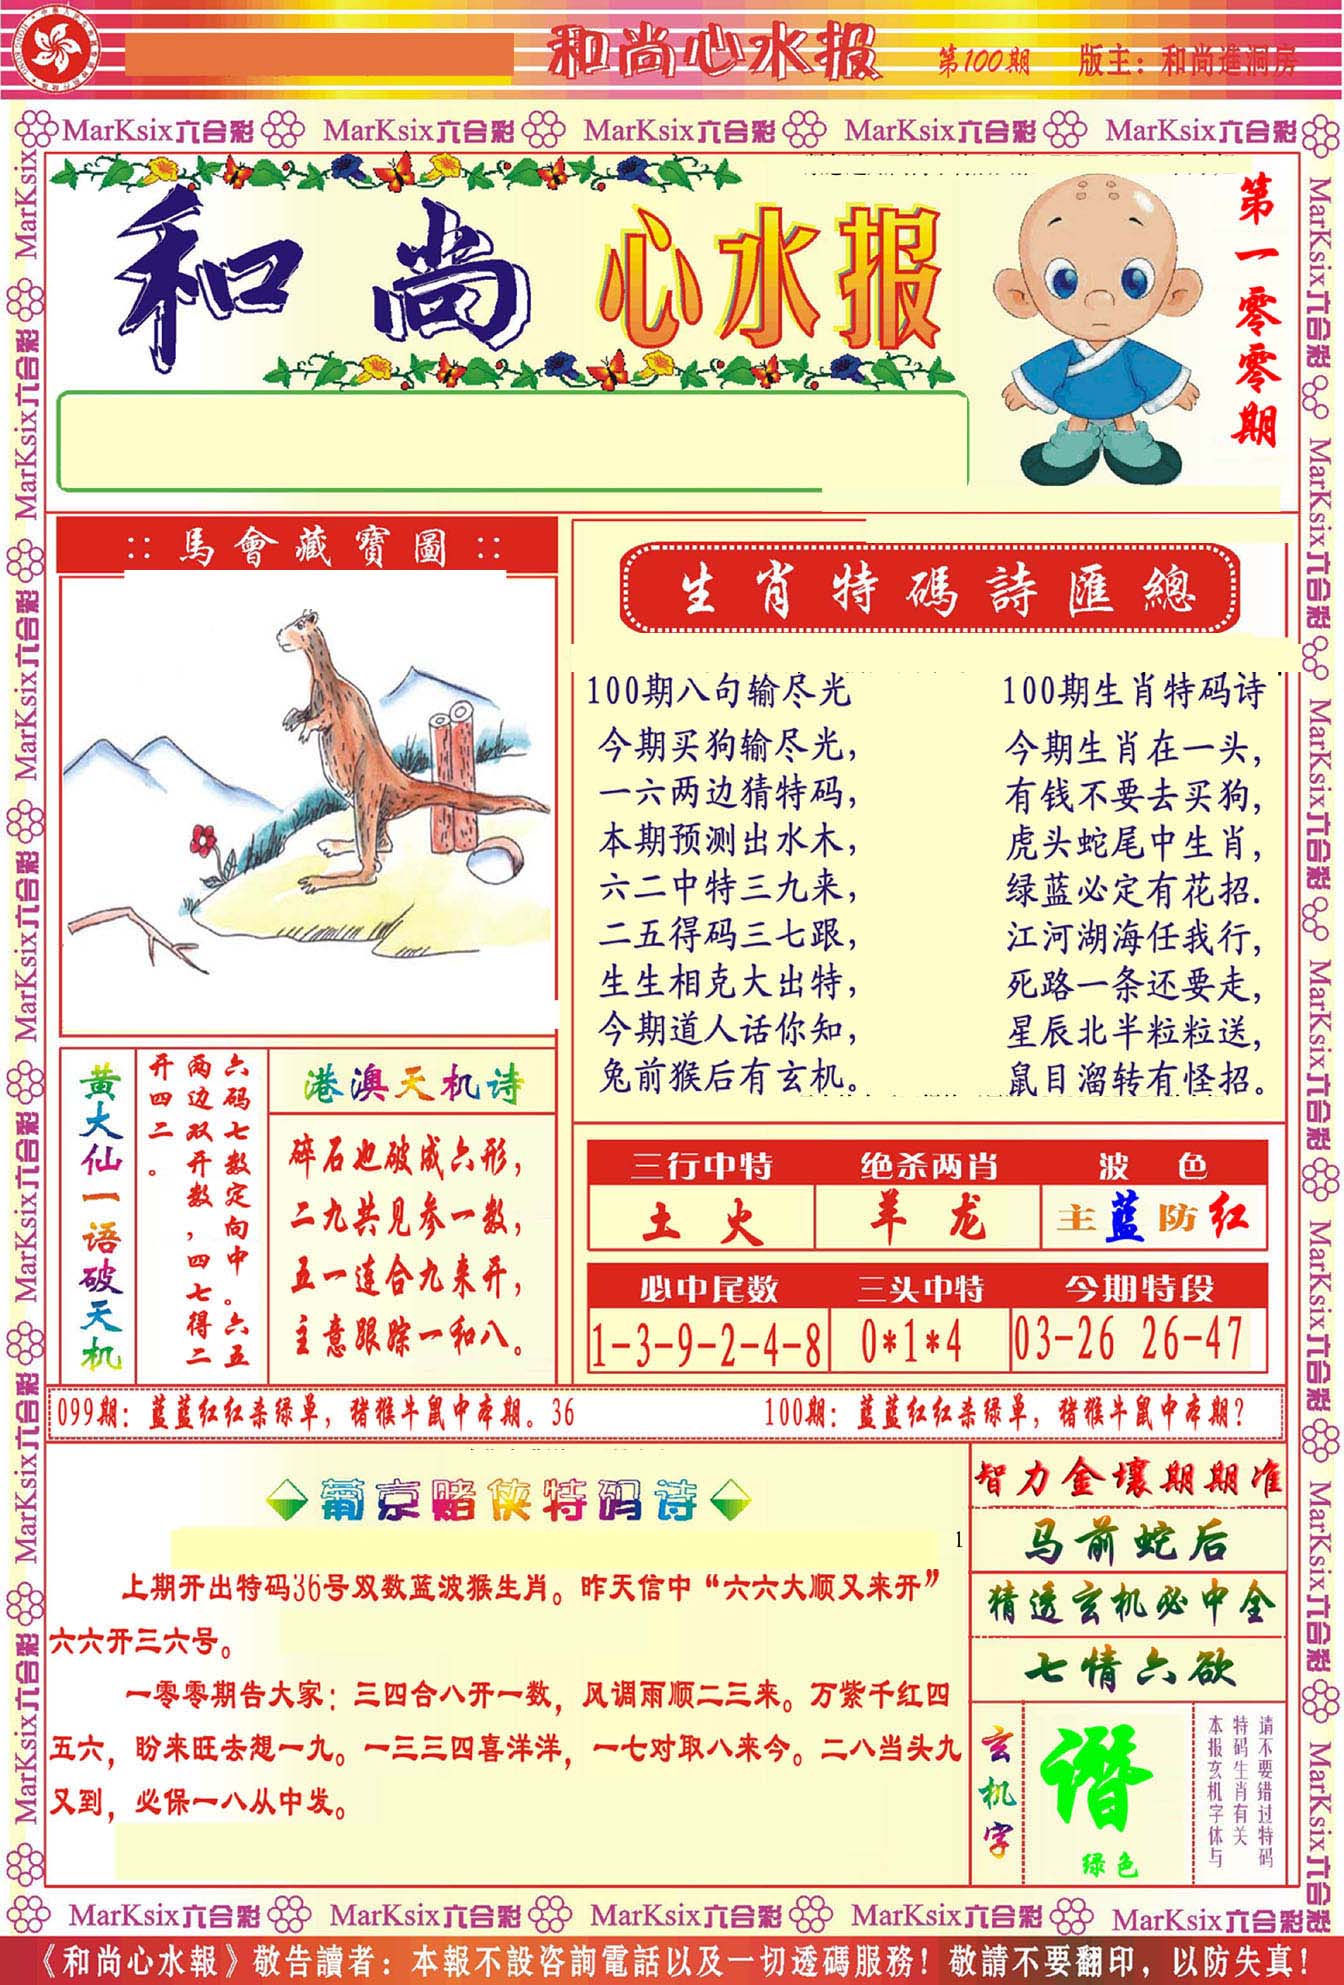 和尚心水报 第100期 版主：和尚進洞房
MarKsix六合彩 MarKsix六合彩 MarKsix六合彩 MarKsix六合彩 MarKsix六合彩
和尚心水报
第一零零期
::馬會藏寶圖::
生肖特碼詩匯總
100期八句输尽光
今期买狗输尽光，
一六两边猜特码，
本期预测出水木，
六二中特三九来，
二五得码三七跟，
生生相克大出特，
今期道人话你知，
兔前猴后有玄机。
100期生肖特码诗
今期生肖在一头，
有钱不要去买狗，
虎头蛇尾中生肖，
绿蓝必定有花招.
江河湖海任我行，
死路一条还要走，
星辰北半粒粒送，
鼠目溜转有怪招。
黄大仙一语破天机
六码七数定向中。六五
两边双开数，四七得二
开四二。
港澳天机诗
碎石也破成六形，
二九共见参一数，
五一连合九来开，
主意跟踪一和八。
三行中特 绝杀两肖 波色
土火 羊龙 主蓝防红
必中尾数 三头中特 今期特段
1-3-9-2-4-8 0*1*4 03-26 26-47
099期：蓝蓝红红杀绿单，猪猴牛鼠中本期。36 100期：蓝蓝红红杀绿单，猪猴牛鼠中本期？
葡京赌侠特码诗
1
上期开出特码36号双数蓝波猴生肖。昨天信中“六六大顺又来开”
六六开三六号。
一零零期告大家：三四合八开一数，风调雨顺二三来。万紫千红四
五六，盼来旺去想一九。一三三四喜洋洋，一七对取八来今。二八当头九
又到，必保一八从中发。
智力金壤期期准
马前蛇后
猜透玄机必中全
七情六欲
玄机字
谮
绿色
请不要错过特码
特码生肖有关
本报玄机字体与
MarKsix六合彩 MarKsix六合彩 MarKsix六合彩 MarKsix六合彩 MarKsix六合彩
《和尚心水報》敬告讀者：本報不設咨詢電話以及一切透碼服務！敬請不要翻印，以防失真！